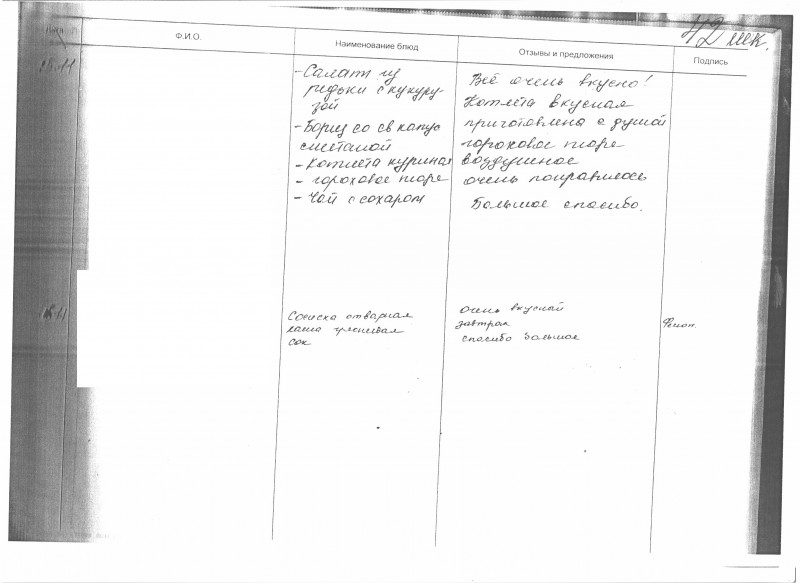 42 шк.
Дата Ф.И.О. Наименование блюд Отзывы и предложения Подпись
15.11
-Салат из
редьки с кукуру-
зой
-Борщ со св капус
сметаной
-Котлета куриная
- гороховое пюре
- Чай с сахаром
Всё очень вкусно!
Котлета вкусная
приготовлена с душой
гороховое пюре
воздушное
очень понравилось
Большое спасибо.
Сосиска отварная
каша гречневая
сок
очень вкусный
завтрак
спасибо большое